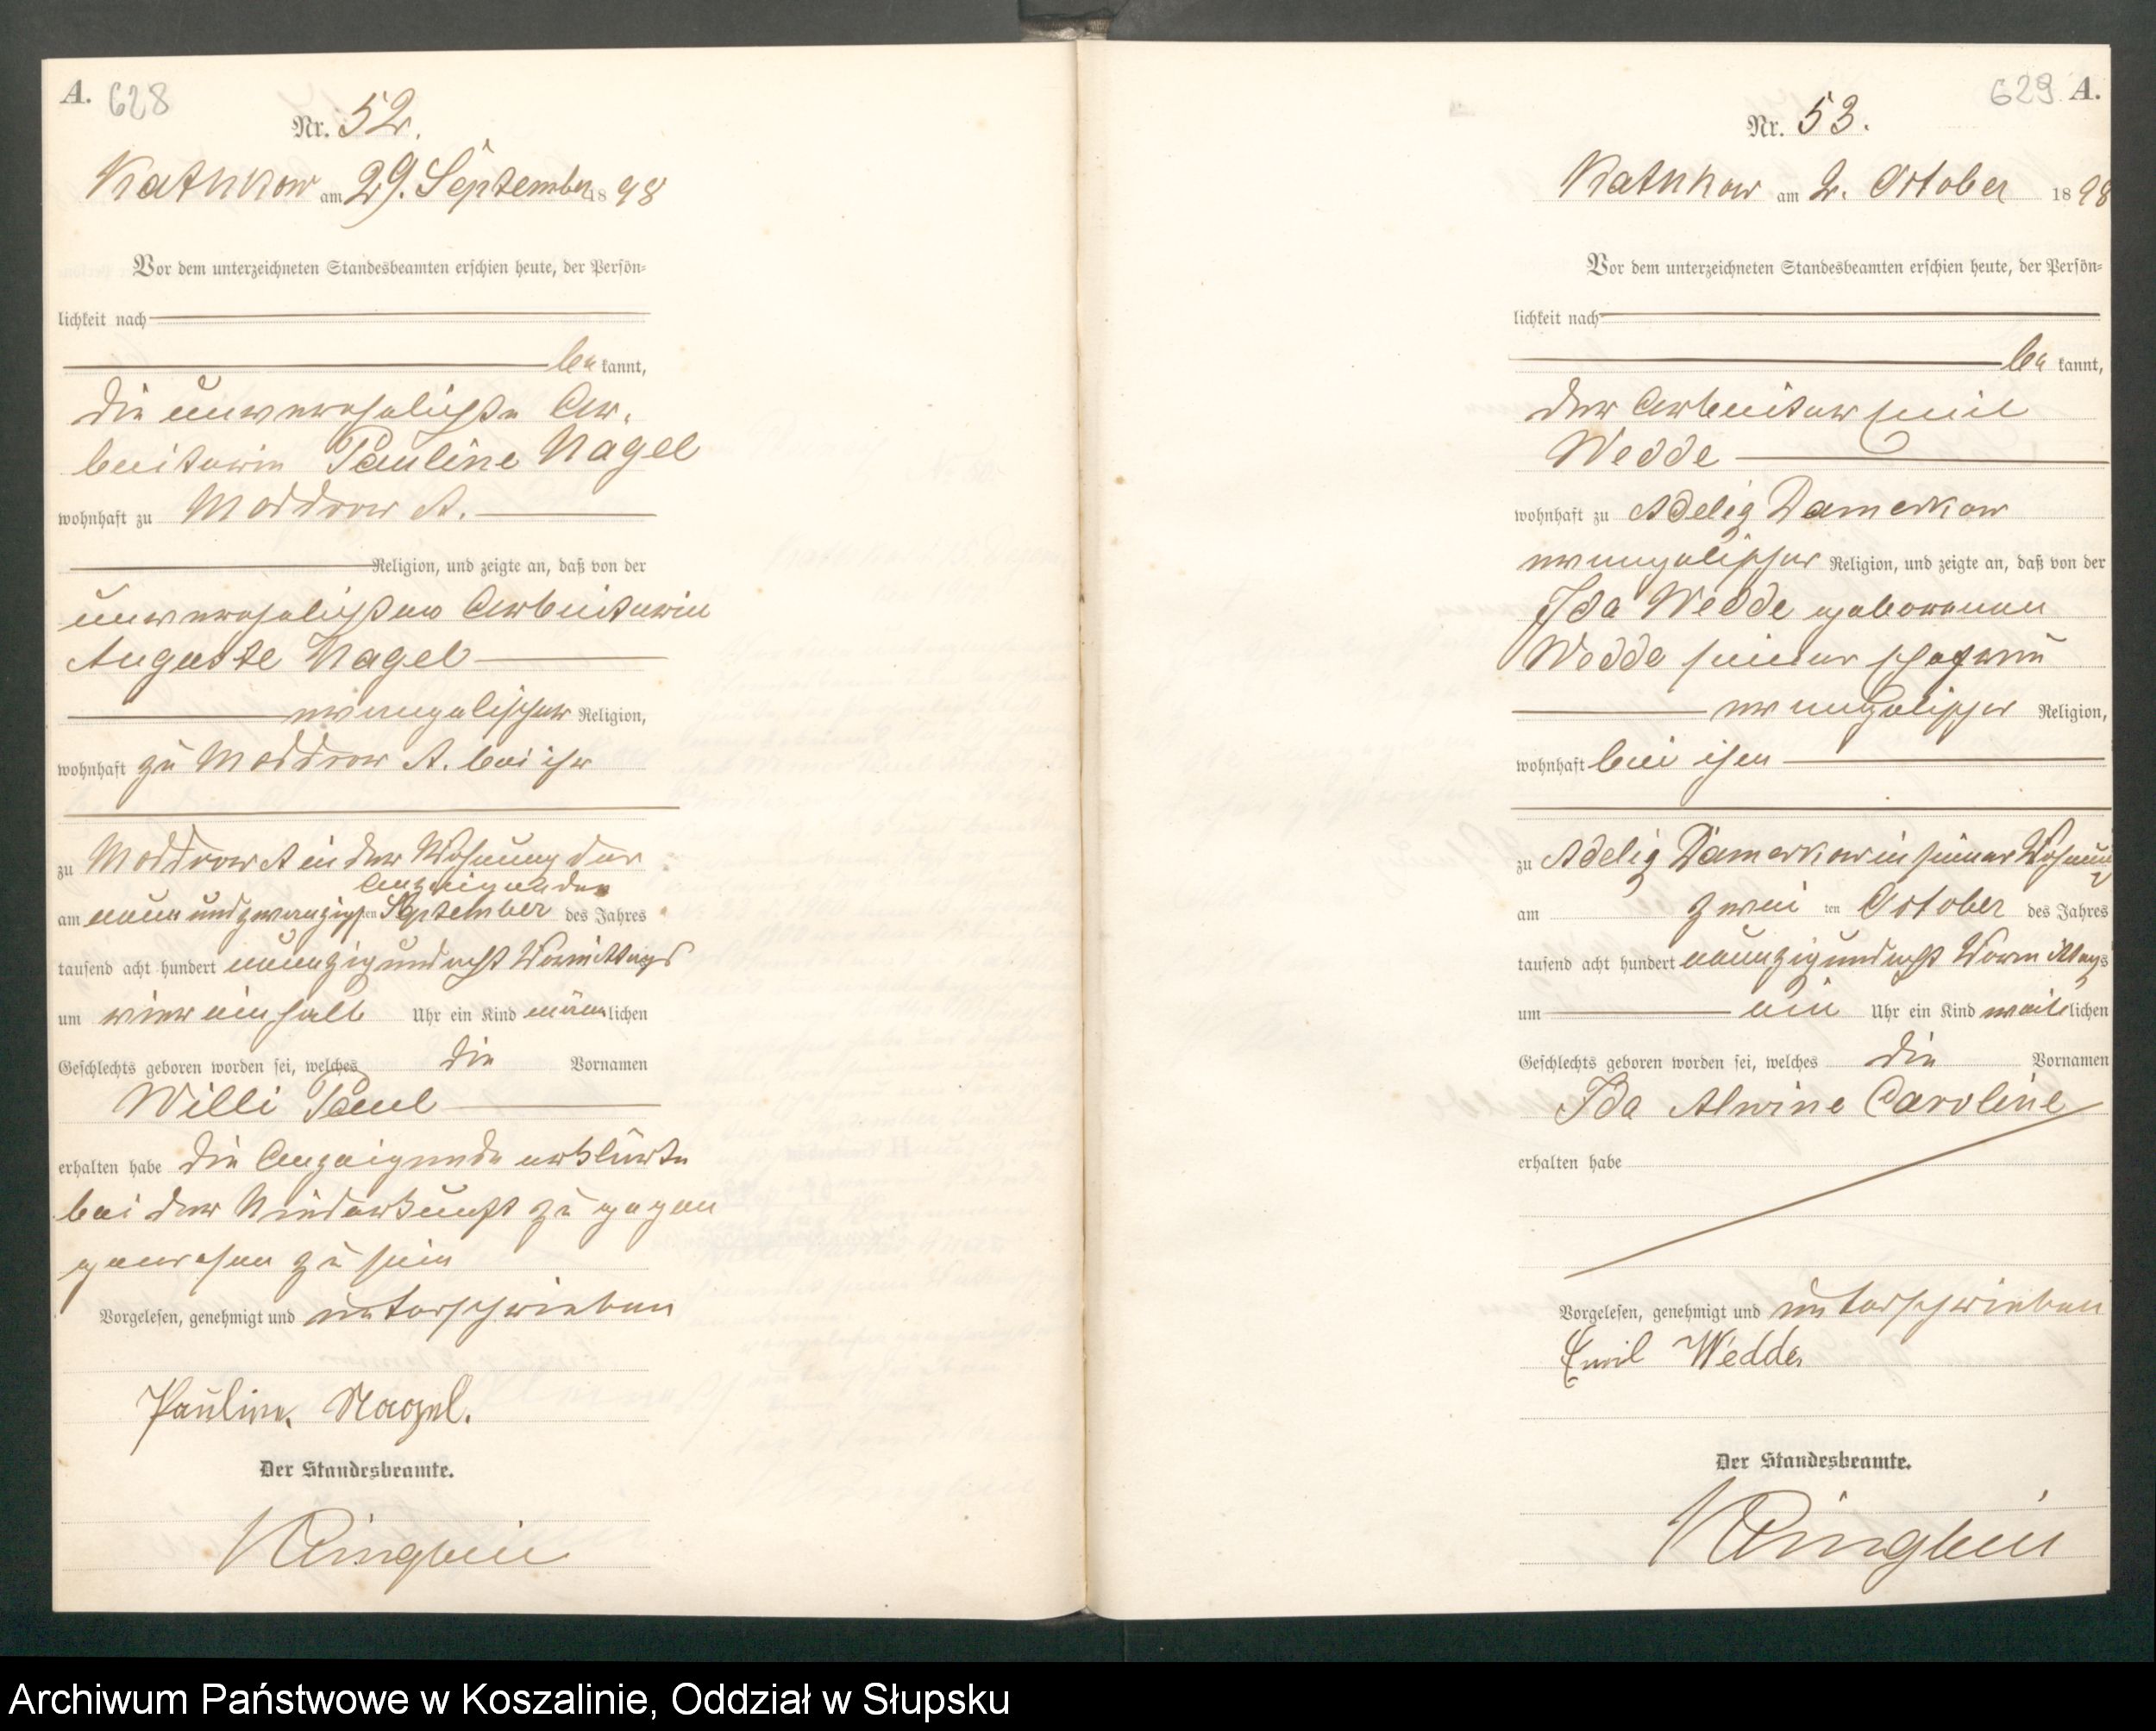 A. 628
Nr. 52.
Katkow am 29. September 1898
Vor dem unterzeichneten Standesbeamten erschien heute, der Persön-
lichkeit nach
be kannt,
die unverehelichte Ar-
beiterin Pauline Nagel
wohnhaft zu Moddrow A.
Religion, und zeigte an, daß von der
unverehelichten Arbeiterin
Auguste Nagel
evangelischer Religion,
wohnhaft zu Moddrow A. bei ihr
zu Moddrow A in der Wohnung der
Anzeigenden
am neun und zwanzigsten September des Jahres
tausend acht hundert neunzig und acht Vormittags
um vier ein halb Uhr ein Kind männlichen
Geschlechts geboren worden sei, welches die Vornamen
Willi Paul
erhalten habe die Anzeigende erklärte
bei der Niederkunft zu gegen
gewesen zu sein
Vorgelesen, genehmigt und unterschrieben
Pauline Nagel.
Der Standesbeamte.
629 A.
Nr. 53.
am 2. October 1898
Vor dem unterzeichneten Standesbeamten erschien heute, der Persön-
lichkeit nach
be kannt,
der Arbeiter Emil
Wedde
wohnhaft zu Adelig Damerkow
evangelischer Religion, und zeigte an, daß von der
Ida Wedde geborenen
Wedde seiner Ehefrau
evangelischer Religion,
wohnhaft bei ihm
zu Adelig Damerkow in seiner Wohnung
am zwei ten October des Jahres
tausend acht hundert neunzig und acht Vormittags
um ein Uhr ein Kind weiblichen
Geschlechts geboren worden sei, welches die Vornamen
Ida Alwine Caroline
erhalten habe
Vorgelesen, genehmigt und unterschrieben
Emil Wedde
Der Standesbeamte.
Archiwum Państwowe w Koszalinie, Oddział w Słupsku